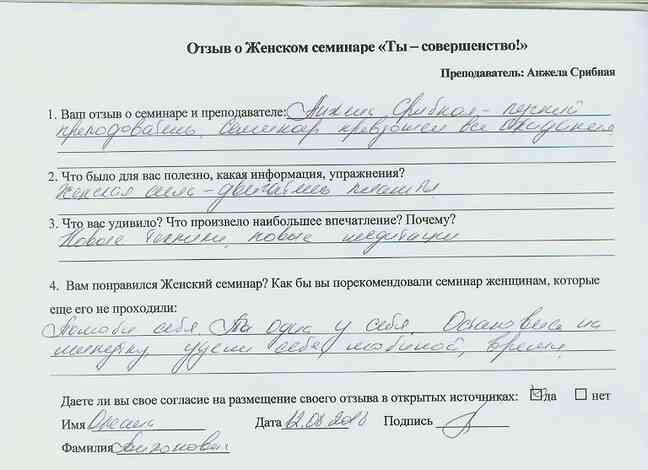 Отзыв о Женском семинаре «Ты – совершенство!»
Преподаватель: Анжела Срибная
1. Ваш отзыв о семинаре и преподавателе: Срибная -
преподаватель. Семинар все ожидания
2. Что было для вас полезно, какая информация, упражнения?
Женская сила - двигатель планеты
3. Что вас удивило? Что произвело наибольшее впечатление? Почему?
Новые техники, новые медитации
4. Вам понравился Женский семинар? Как бы вы порекомендовали семинар женщинам, которые
еще его не проходили:
себя. Ты одна у себя. Остановись на
минутку удели себе, любимой, время.
Даете ли вы свое согласие на размещение своего отзыва в открытых источниках: да нет
Имя Дата 12.08.2018 Подпись
Фамилия